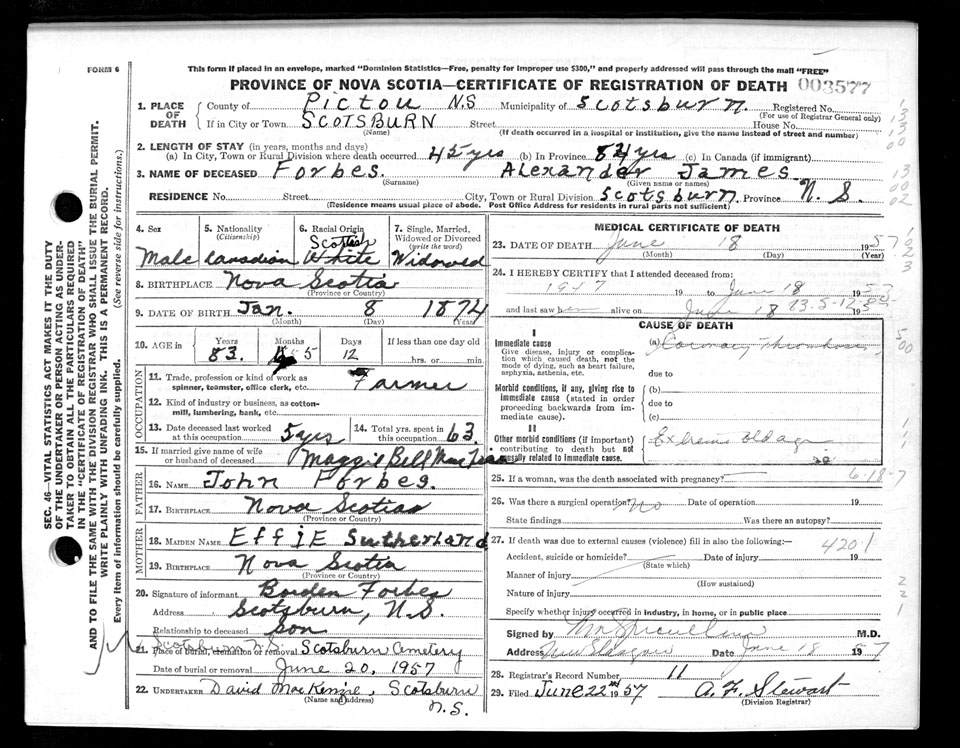 This form if placed in an envelope, marked "Dominion Statistics—Free, penalty for improper use $300," and properly addressed will pass through the mail "FREE"
FORM 6
PROVINCE OF NOVA SCOTIA—CERTIFICATE OF REGISTRATION OF DEATH 003577
1. PLACE OF DEATH
County of Pictou N.S Municipality of Scotsburn. Registered No.
(For use of Registrar General only)
If in City or Town SCOTSBURN Street House No.
(Name) (If death occurred in a hospital or institution, give the name instead of street and number)
2. LENGTH OF STAY (in years, months and days)
(a) In City, Town or Rural Division where death occurred 45 yrs (b) In Province 84 yrs (c) In Canada (if immigrant)
3. NAME OF DECEASED Forbes. Alexander James
(Surname) (Given name or names)
RESIDENCE No. Street City, Town or Rural Division Scotsburn Province N.S.
(Residence means usual place of abode. Post Office Address for residents in rural parts not sufficient)
4. Sex
Male
5. Nationality
(Citizenship)
Canadian
6. Racial Origin
Scottish
White
7. Single, Married, Widowed or Divorced
(write the word)
Widowed
8. BIRTHPLACE Nova Scotia
(Province or Country)
9. DATE OF BIRTH Jan. 8 1874
(Month) (Day) (Year)
10. AGE in
Years Months Days If less than one day old
83. 5 12 hrs. or min.
OCCUPATION
11. Trade, profession or kind of work as
spinner, teamster, office clerk, etc. Farmer
12. Kind of industry or business, as cotton-
mill, lumbering, bank, etc.
13. Date deceased last worked
at this occupation 5 yrs
14. Total yrs. spent in
this occupation 63.
15. If married give name of wife
or husband of deceased Maggie Bell MacLean
FATHER
16. NAME John Forbes.
17. BIRTHPLACE Nova Scotia
(Province or Country)
MOTHER
18. MAIDEN NAME Effie Sutherland
19. BIRTHPLACE Nova Scotia
(Province or Country)
20. Signature of informant Borden Forbes
Address Scotsburn, N.S.
Relationship to deceased son
21. Place of burial, cremation or removal Scotsburn Cemetery
Date of burial or removal June 20, 1957
22. UNDERTAKER David MacKenzie, Scotsburn
(Name and address) N.S.
MEDICAL CERTIFICATE OF DEATH
23. DATE OF DEATH June 18 1957
(Month) (Day) (Year)
24. I HEREBY CERTIFY that I attended deceased from:
1947 19 to June 18 1957
and last saw h alive on June 18 19
CAUSE OF DEATH
I
Immediate cause
Give disease, injury or complica-
tion which caused death, not the
mode of dying, such as heart failure,
asphyxia, asthenia, etc.
(a) Coronary Thrombosis
due to
Morbid conditions, if any, giving rise to
immediate cause (stated in order
proceeding backwards from im-
mediate cause).
(b)
due to
(c)
II
Other morbid conditions (if important)
contributing to death but not
causally related to immediate cause.
Extreme old age
25. If a woman, was the death associated with pregnancy? 6-18-7
26. Was there a surgical operation? No Date of operation 19
State findings Was there an autopsy?
27. If death was due to external causes (violence) fill in also the following:— 420.1
Accident, suicide or homicide? Date of injury 19
(State which)
Manner of injury
(How sustained)
Nature of injury
Specify whether injury occurred in industry, in home, or in public place
Signed by M.D.
Address New Glasgow Date June 18 57
28. Registrar's Record Number 11
29. Filed June 22nd 1957 A. F. Stewart
(Division Registrar)
SEC. 46—VITAL STATISTICS ACT MAKES IT THE DUTY
OF THE UNDERTAKER OR PERSON ACTING AS UNDER-
TAKER TO OBTAIN ALL THE PARTICULARS REQUIRED
IN THE "CERTIFICATE OF REGISTRATION OF DEATH"
AND TO FILE THE SAME WITH THE DIVISION REGISTRAR WHO SHALL ISSUE THE BURIAL PERMIT.
WRITE PLAINLY WITH UNFADING INK. THIS IS A PERMANENT RECORD.
Every item of information should be carefully supplied. (See reverse side for instructions.)